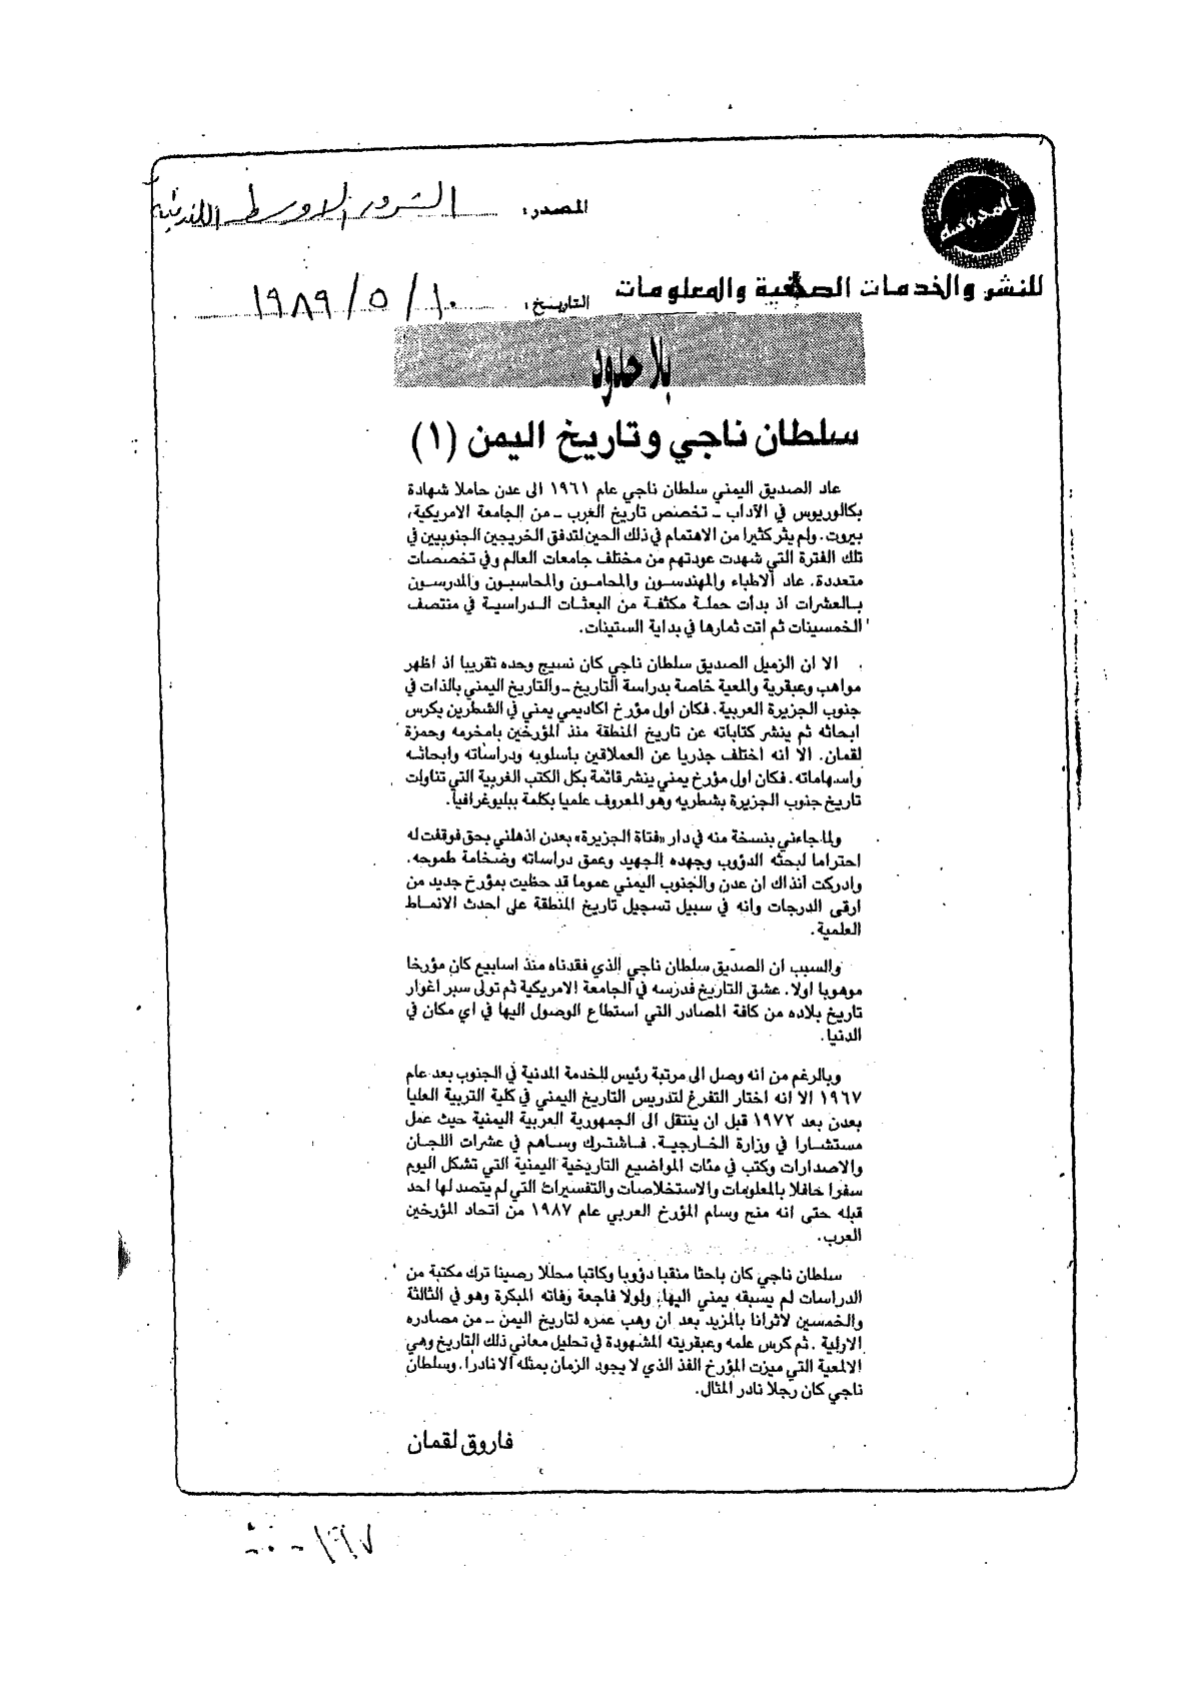 المحروسة
المصدر: الشرق الاوسط اللندنية
للنشر والخدمات الصحفية والمعلومات
التاريخ: ١٠/ ٥ / ١٩٨٩
بلا حدود
سلطان ناجي وتاريخ اليمن (١)
عاد الصديق اليمني سلطان ناجي عام ١٩٦١ الى عدن حاملا شهادة
بكالوريوس في الآداب ـ تخصص تاريخ الغرب ـ من الجامعة الامريكية،
بيروت. ولم يثر كثيرا من الاهتمام في ذلك الحين لتدفق الخريجين الجنوبيين في
تلك الفترة التي شهدت عودتهم من مختلف جامعات العالم وفي تخصصات
متعددة. عاد الاطباء والمهندسون والمحامون والمحاسبون والمدرسون
بالعشرات اذ بدأت حملة مكثفة من البعثات الدراسية في منتصف
الخمسينات ثم اتت ثمارها في بداية الستينات.
الا ان الزميل الصديق سلطان ناجي كان نسيج وحده تقريبا اذ اظهر
مواهب وعبقرية والمعية خاصة بدراسة التاريخ ـ والتاريخ اليمني بالذات في
جنوب الجزيرة العربية. فكان اول مؤرخ اكاديمي يمني في الشطرين يكرس
ابحاثه ثم ينشر كتاباته عن تاريخ المنطقة منذ المؤرخين بامخرمه وحمزة
لقمان. الا انه اختلف جذريا عن العملاقين بأسلوبه ودراساته وابحاثه
واسهاماته. فكان اول مؤرخ يمني ينشر قائمة بكل الكتب الغربية التي تناولت
تاريخ جنوب الجزيرة بشطريه وهو المعروف علميا بكلمة ببليوغرافيا.
ولما جاءني بنسخة منه في دار «فتاة الجزيرة» بعدن اذهلني بحق فوقفت له
احتراما لبحثه الدؤوب وجهده الجهيد وعمق دراساته وضخامة طموحه.
وادركت انذاك ان عدن والجنوب اليمني عموما قد حظيت بمؤرخ جديد من
ارقى الدرجات وانه في سبيل تسجيل تاريخ المنطقة على احدث الانماط
العلمية.
والسبب ان الصديق سلطان ناجي الذي فقدناه منذ اسابيع كان مؤرخا
موهوبا اولا. عشق التاريخ فدرسه في الجامعة الامريكية ثم تولى سبر اغوار
تاريخ بلاده من كافة المصادر التي استطاع الوصول اليها في اي مكان في
الدنيا.
وبالرغم من انه وصل الى مرتبة رئيس للخدمة المدنية في الجنوب بعد عام
١٩٦٧ الا انه اختار التفرغ لتدريس التاريخ اليمني في كلية التربية العليا
بعدن بعد ١٩٧٢ قبل ان ينتقل الى الجمهورية العربية اليمنية حيث عمل
مستشارا في وزارة الخارجية. فاشترك وساهم في عشرات اللجان
والاصدارات وكتب في مئات المواضيع التاريخية اليمنية التي تشكل اليوم
سفرا حافلا بالمعلومات والاستخلاصات والتفسيرات التي لم يتصد لها احد
قبله حتى انه منح وسام المؤرخ العربي عام ١٩٨٧ من اتحاد المؤرخين
العرب.
سلطان ناجي كان باحثا منقبا دؤوبا وكاتبا محللا رصينا ترك مكتبة من
الدراسات لم يسبقه يمني اليها. ولولا فاجعة وفاته المبكرة وهو في الثالثة
والخمسين لاثرانا بالمزيد بعد ان وهب عمره لتاريخ اليمن ـ من مصادره
الاولية. ثم كرس علمه وعبقريته المشهودة في تحليل معاني ذلك التاريخ وهي
الالمعية التي ميزت المؤرخ الفذ الذي لا يجود الزمان بمثله الا نادرا. وسلطان
ناجي كان رجلا نادر المثال.
فاروق لقمان